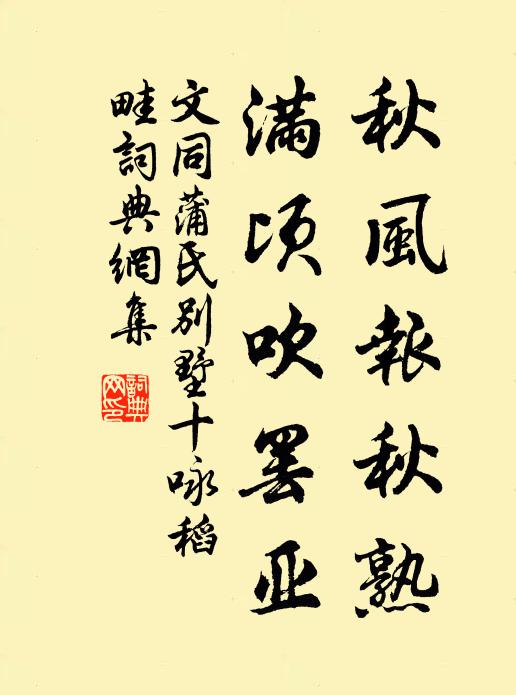 秋風報秋熟
滿頃吹罢亚
文同蒲氏別墅十咏稻
畦詞典網集
詞典
网印